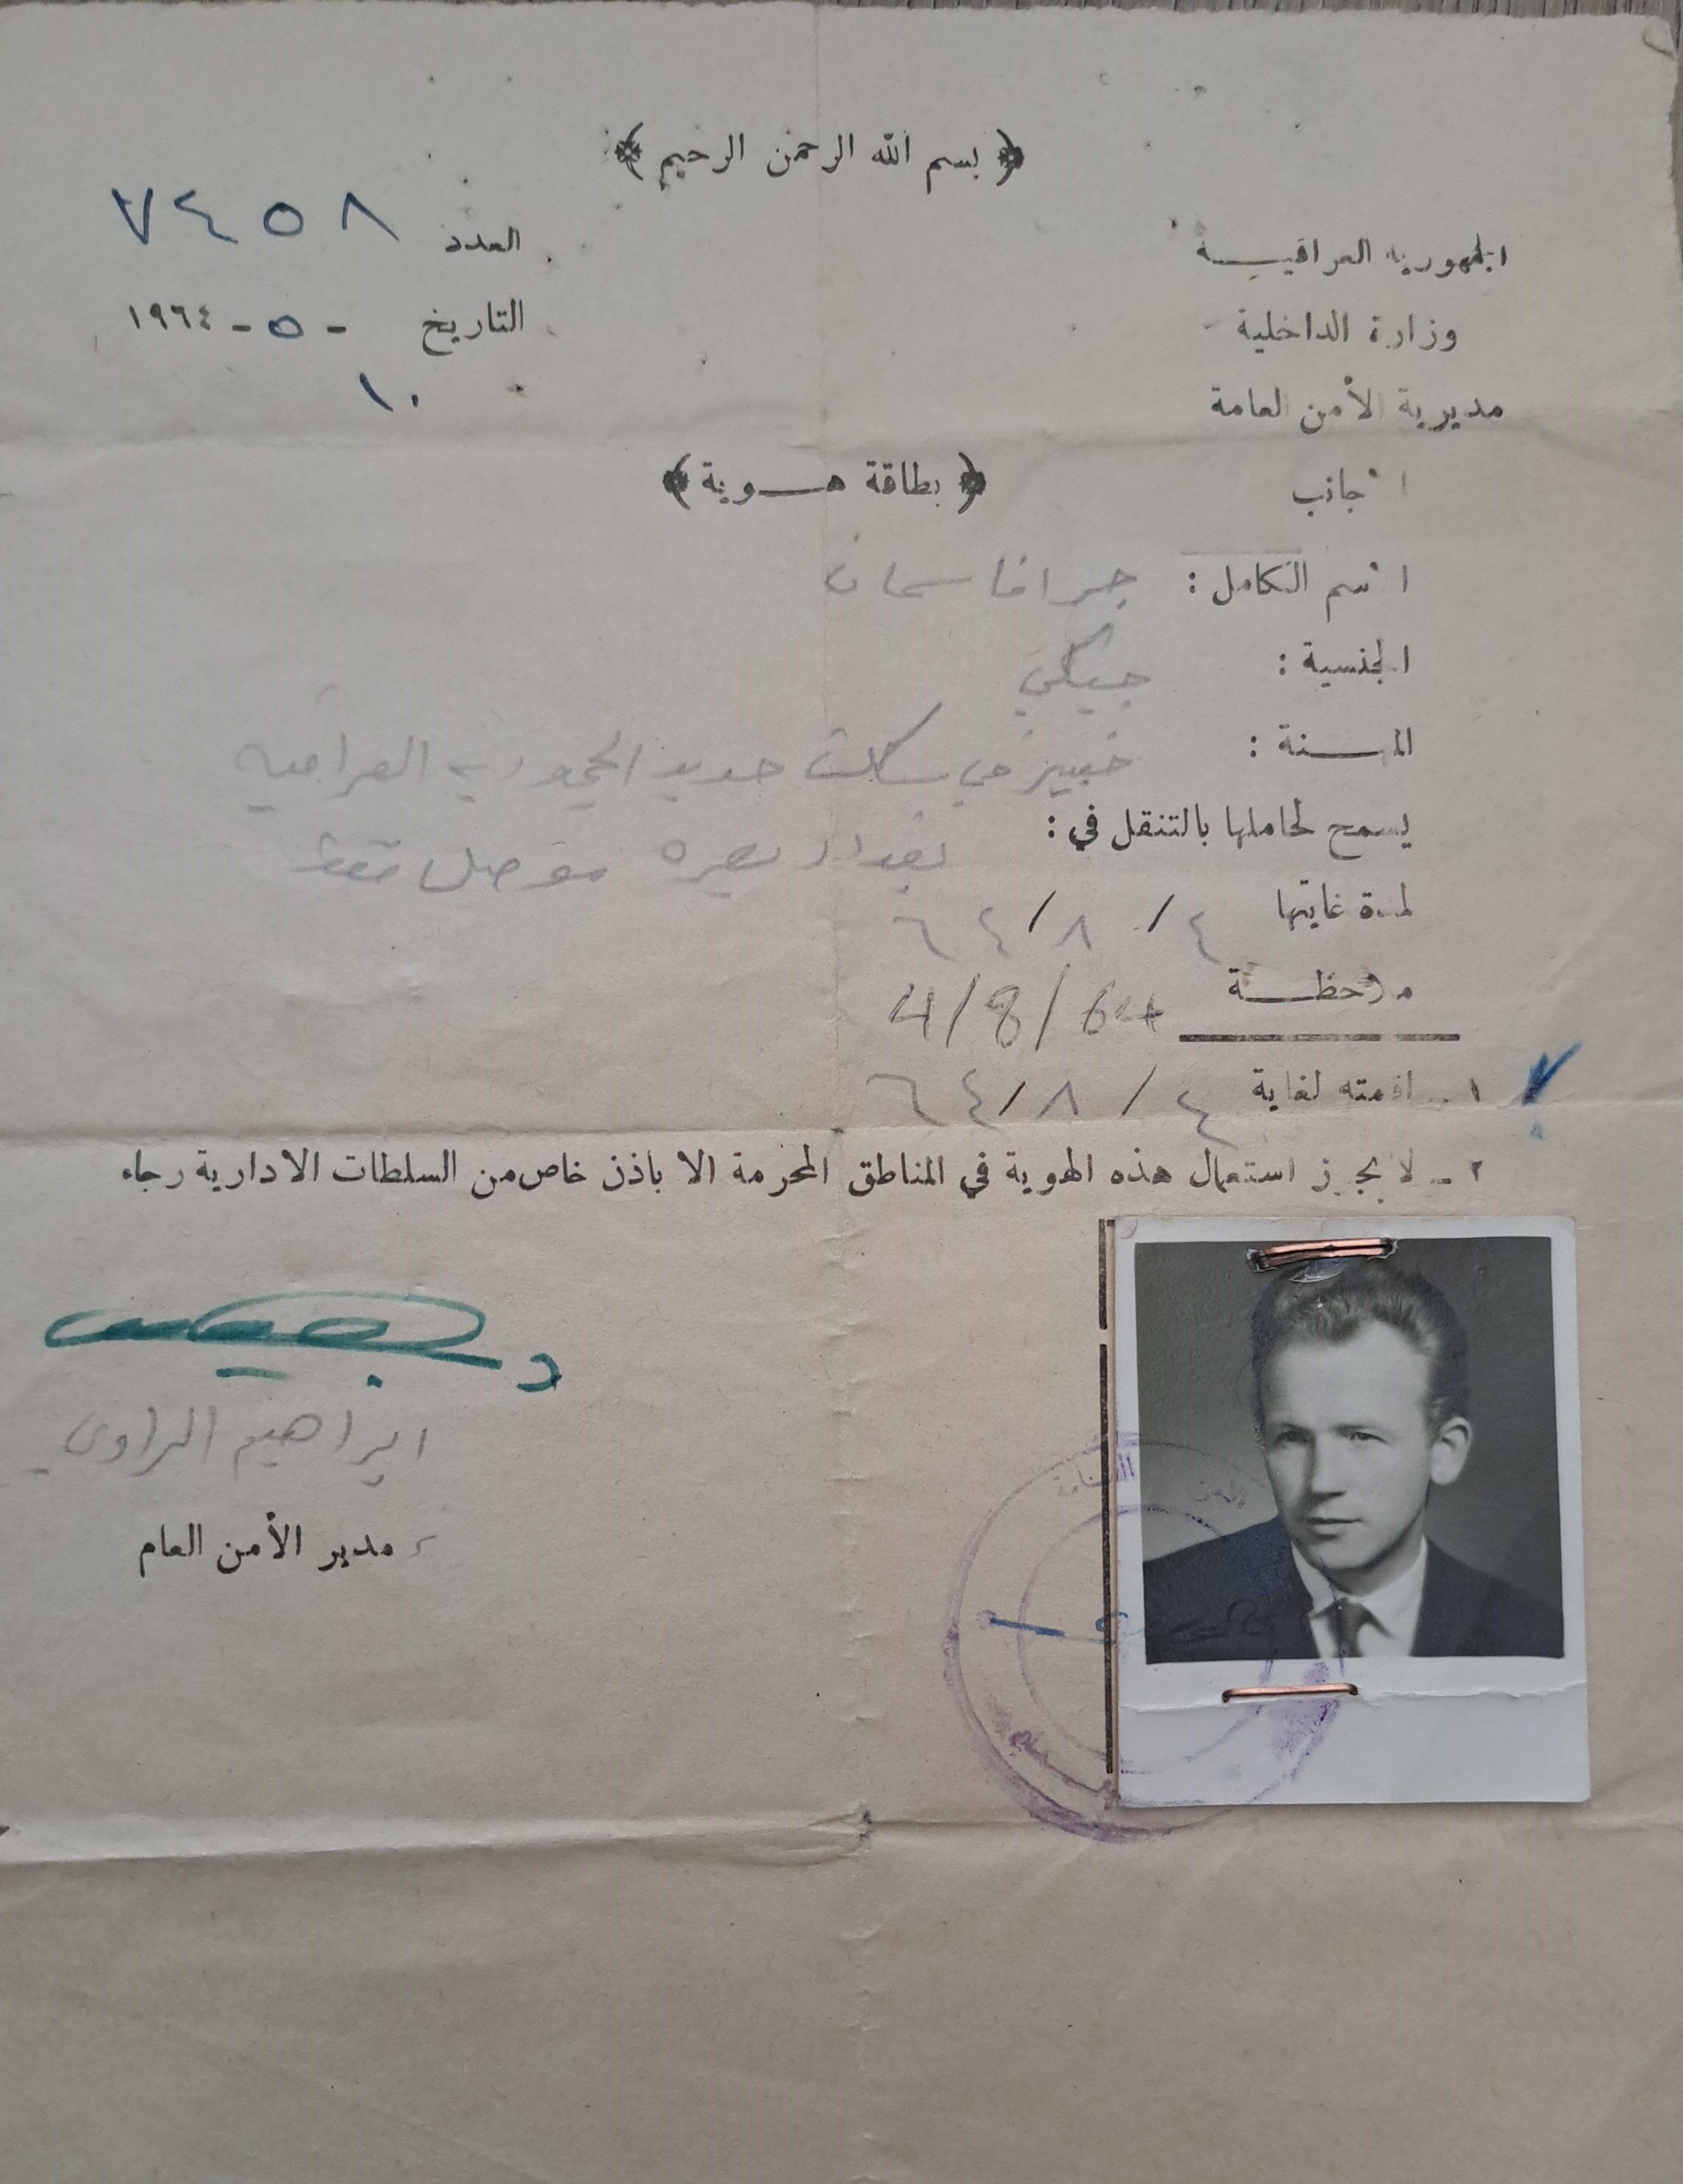 ﴿ بسم الله الرحمن الرحيم ﴾
الجمهورية العراقيـــة
العدد ٧٤٥٨
وزارة الداخلية
التاريخ - ٥ - ١٩٦٤
١٠
مديرية الأمن العامة
اجانب
﴿ بطاقة هـــوية ﴾
الاسم الكامل :
الجنسية : جيكي
المهـــنة : خبير في سكك حديد الجمهورية العراقية
يسمح لحاملها بالتنقل في : بغداد بصره موصل فقط
لمدة غايتها ٤ / ٨ / ٦٤
ملاحظـــة
4/8/64
١ - اقامته لغاية ٤ / ٨ / ٦٤
٢ - لا يجوز استعمال هذه الهوية في المناطق المحرمة الا باذن خاص من السلطات الادارية رجاء
ابراهيم الراوي
مدير الأمن العام